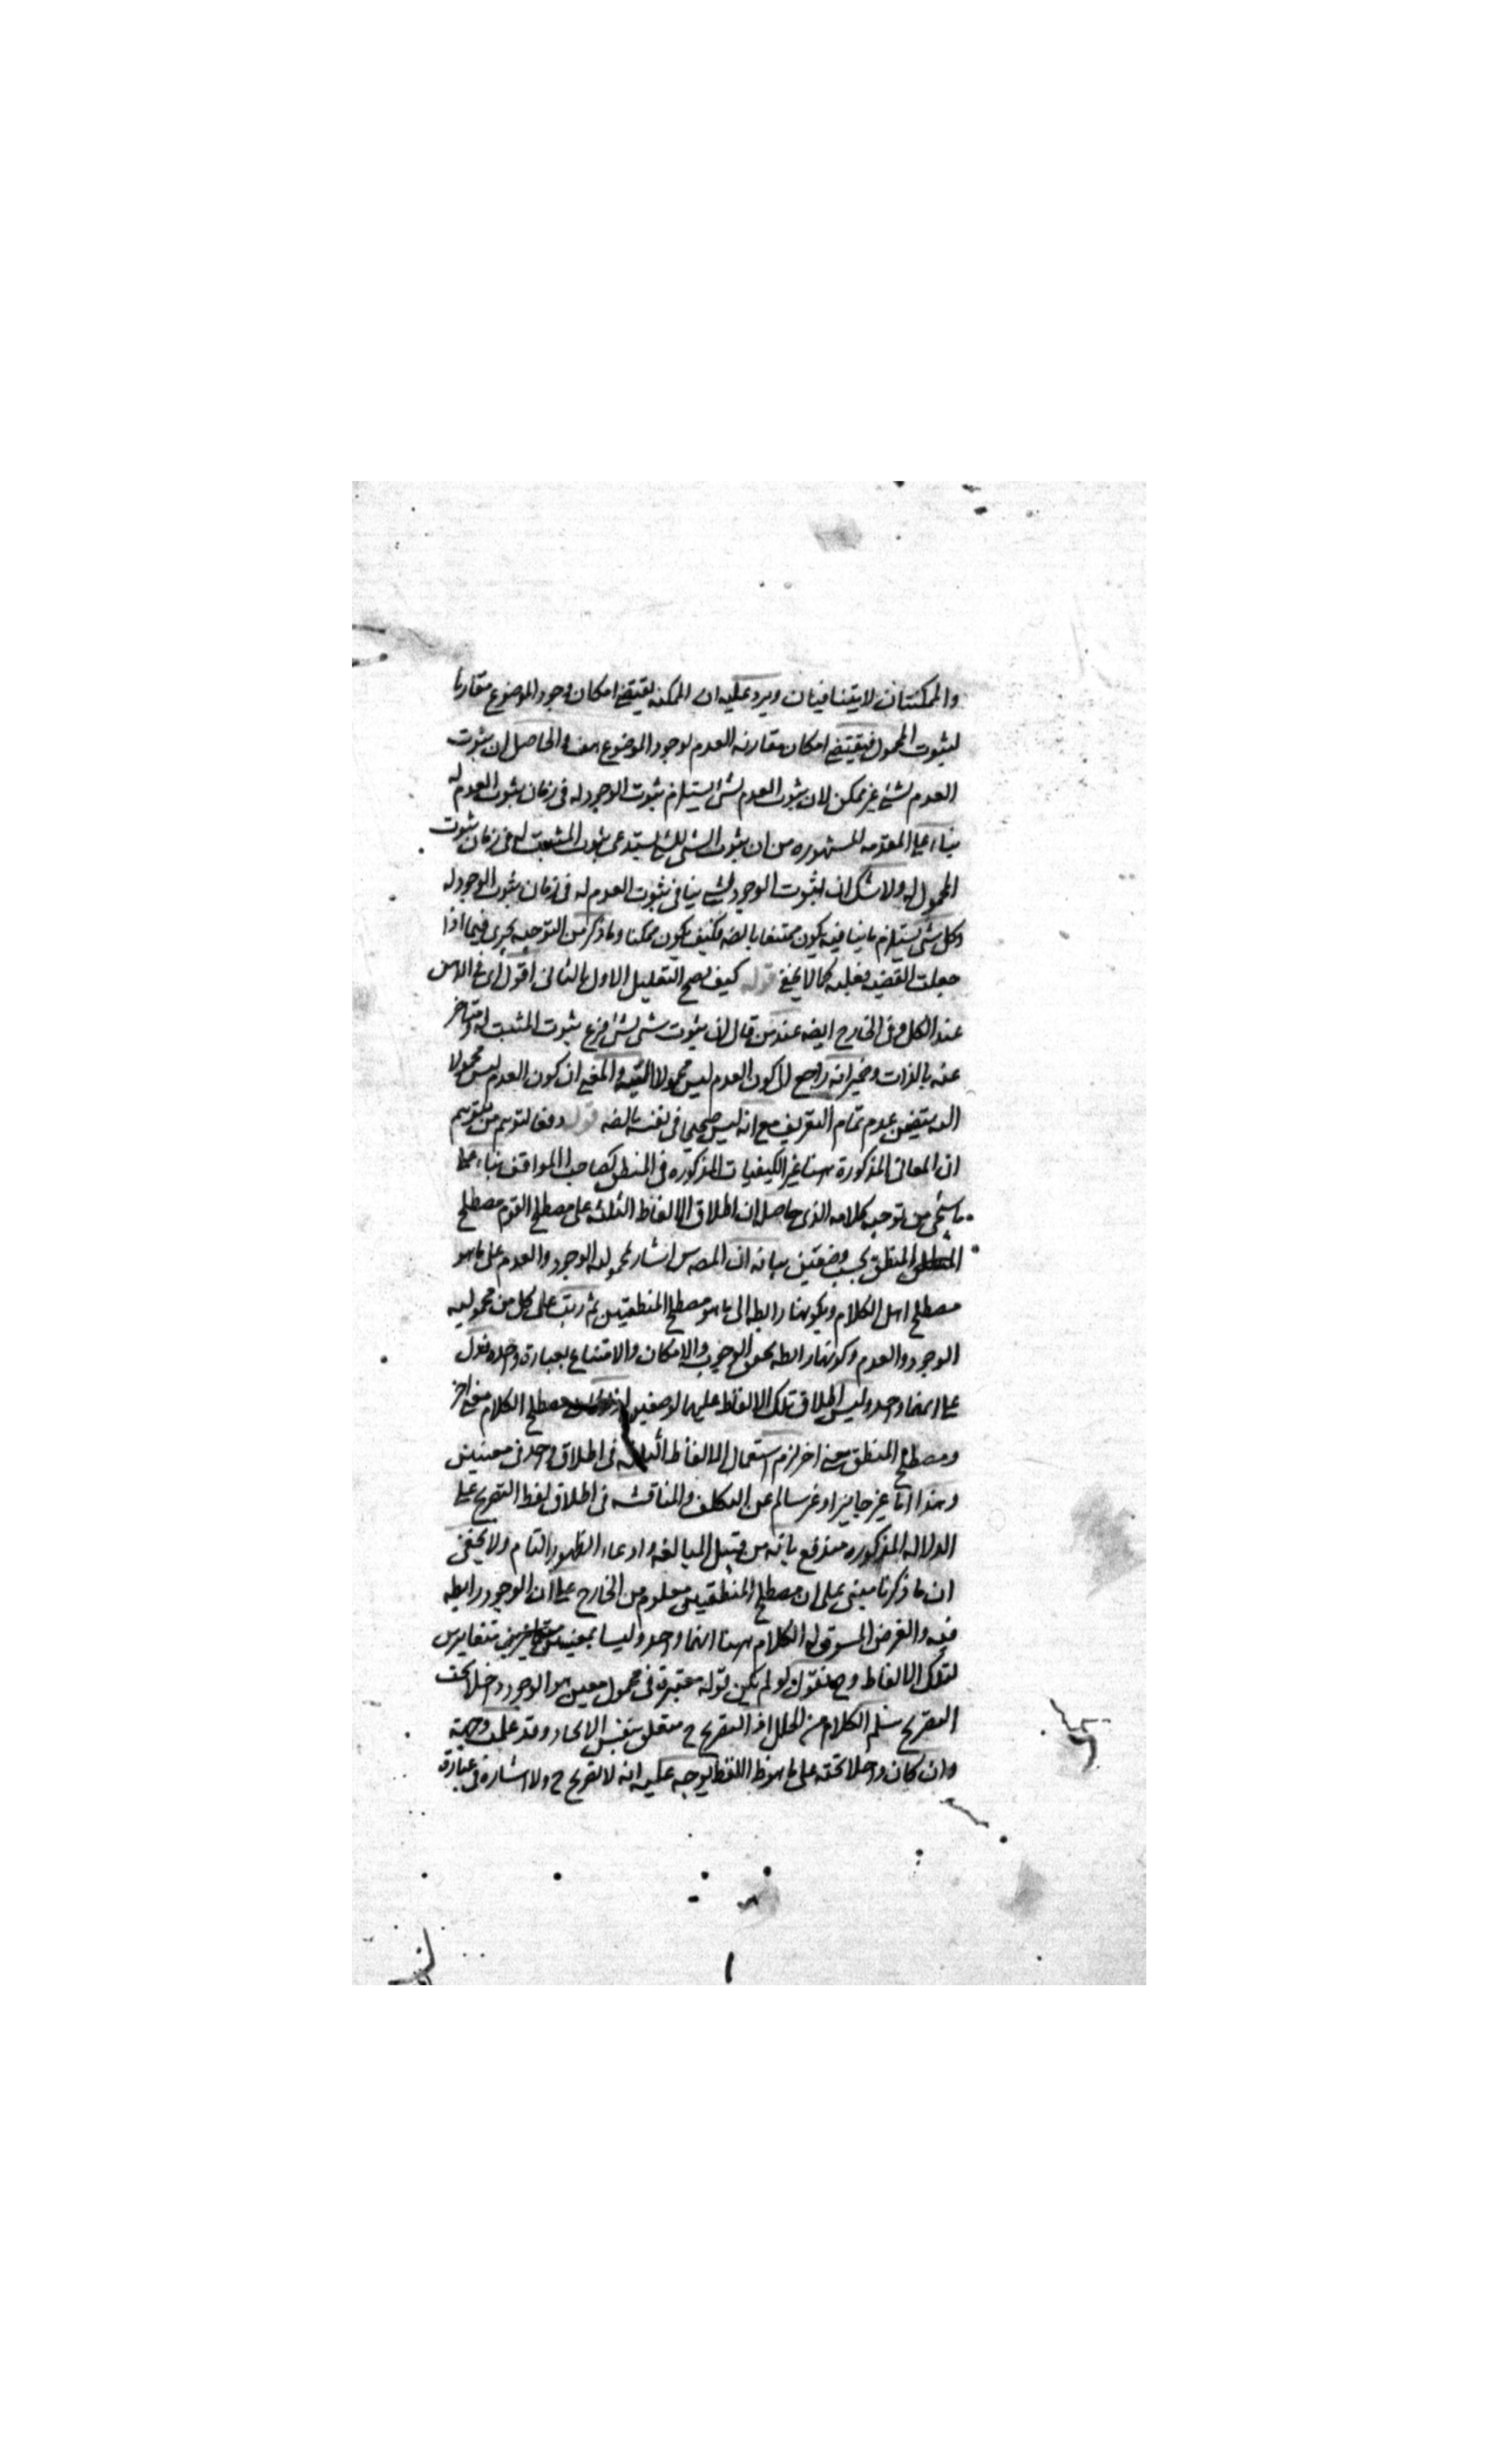 والممكنتان لا يتنافيان ويرد عليه ان الممكنه يقتضى امكان وجود الموضوع مقارنا
لثبوت المحمول فيقتضى امكان مقارنه العدم لوجود الموضوع هف والحاصل ان ثبوت
العدم لشئ غير ممكن لان ثبوت العدم لشئ يستلزم ثبوت الوجود له فى زمان ثبوت العدم له
بناء على المقدمه المشهوره من ان ثبوت الشئ للشئ يستدعى ثبوت المثبت له فى زمان ثبوت
المحمول له ولا شك ان ثبوت الوجود لشئ ينافى ثبوت العدم له فى زمان ثبوت الوجود له
وكل شئ يستلزم ما ينافيه يكون ممتنعا بالضه فكيف يكون ممكنا وما ذكر من التوجيه يجرى فيما اذا
جعلت القضيه فعليه كما لا يخفى قوله كيف يصح التعليل الاول بالثانى اقول اى فى الذهن
عند الكل وفى الخارج ايضه عند من قال ان ثبوت شئ لشئ فرع ثبوت المثبت له ومتاخر
عنه بالذات وضمير انه راجع الى كون العدم ليس محمولا والمعنى ان كون العدم ليس محمولا
البته يتضمن عدم تمام التعريف مع انه ليس صحيح فى نفسه بالضه قوله دفعا لتوهم من يتوهم
ان المعانى المذكورة ههنا غير الكيفيات المذكوره فى المنطق كصاحب المواقف بناء على
ما سيجئ من توجيه كلامه الذى حاصله ان اطلاق الالفاظ الثلثه على مصطلح القوم مصطلح
المنطق بحسب وضعين بيانه ان المصه اشار بمحموليه الوجود والعدم على ما هو
مصطلح اهل الكلام وبكونهما رابطه الى ما هو مصطلح المنطقيين ثم رتب على كل من محموليه
الوجود والعدم وكونهما رابطه تحقق الوجوب والامكان والامتناع بعبارة واحده فدل
على انهما واحد وليس اطلاق تلك الالفاظ عليهما لوضعين مصطلح الكلام معنى اخر
ومصطلح المنطق معنى اخر لزم استعمال الالفاظ الثلثه فى اطلاق واحد فى معنيين
وهذا اما غير جايز او غير سالم عن التكلف والمناقشه فى اطلاق لفظ التصريح على
الدلاله المذكوره مندفع بانه من قبيل المبالغه وادعاء الظهور التام ولا يخفى
ان ما ذكرنا مبنى على ان مصطلح المنطقيين معلوم من الخارج على ان الوجود رابطه
فيه والغرض المسوق له الكلام ههنا انهما واحد وليسا بمعنيين متغايرين
لتلك الالفاظ وح نقول لو لم يكن قوله معتبرة فى محمول معين هو الوجود داخلا تحت
التصريح سلم الكلام من الخلل اذ التصريح ح متعلق بنفس الاتحاد وقد علمت وجهه
وان كان داخلا تحته على ما هو ظ اللفظ يوجه عليه انه لا تصريح ح ولا اشاره فى عبارة